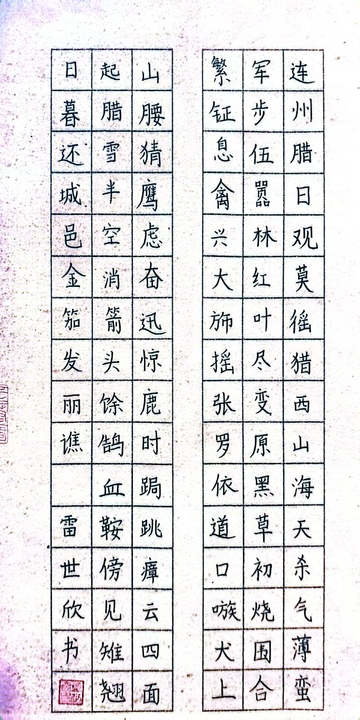 连州腊日观莫徭猎西山海天杀气薄蛮
军步伍嚣林红叶尽变原黑草初烧围合
繁钲息禽兴大旆摇张罗依道口嗾犬上
山腰猜鹰虑奋迅惊鹿时跼跳瘴云四面
起腊雪半空消箭头馀鹄血鞍傍见雉翘
日暮还城邑金笳发丽谯 雷世欣书